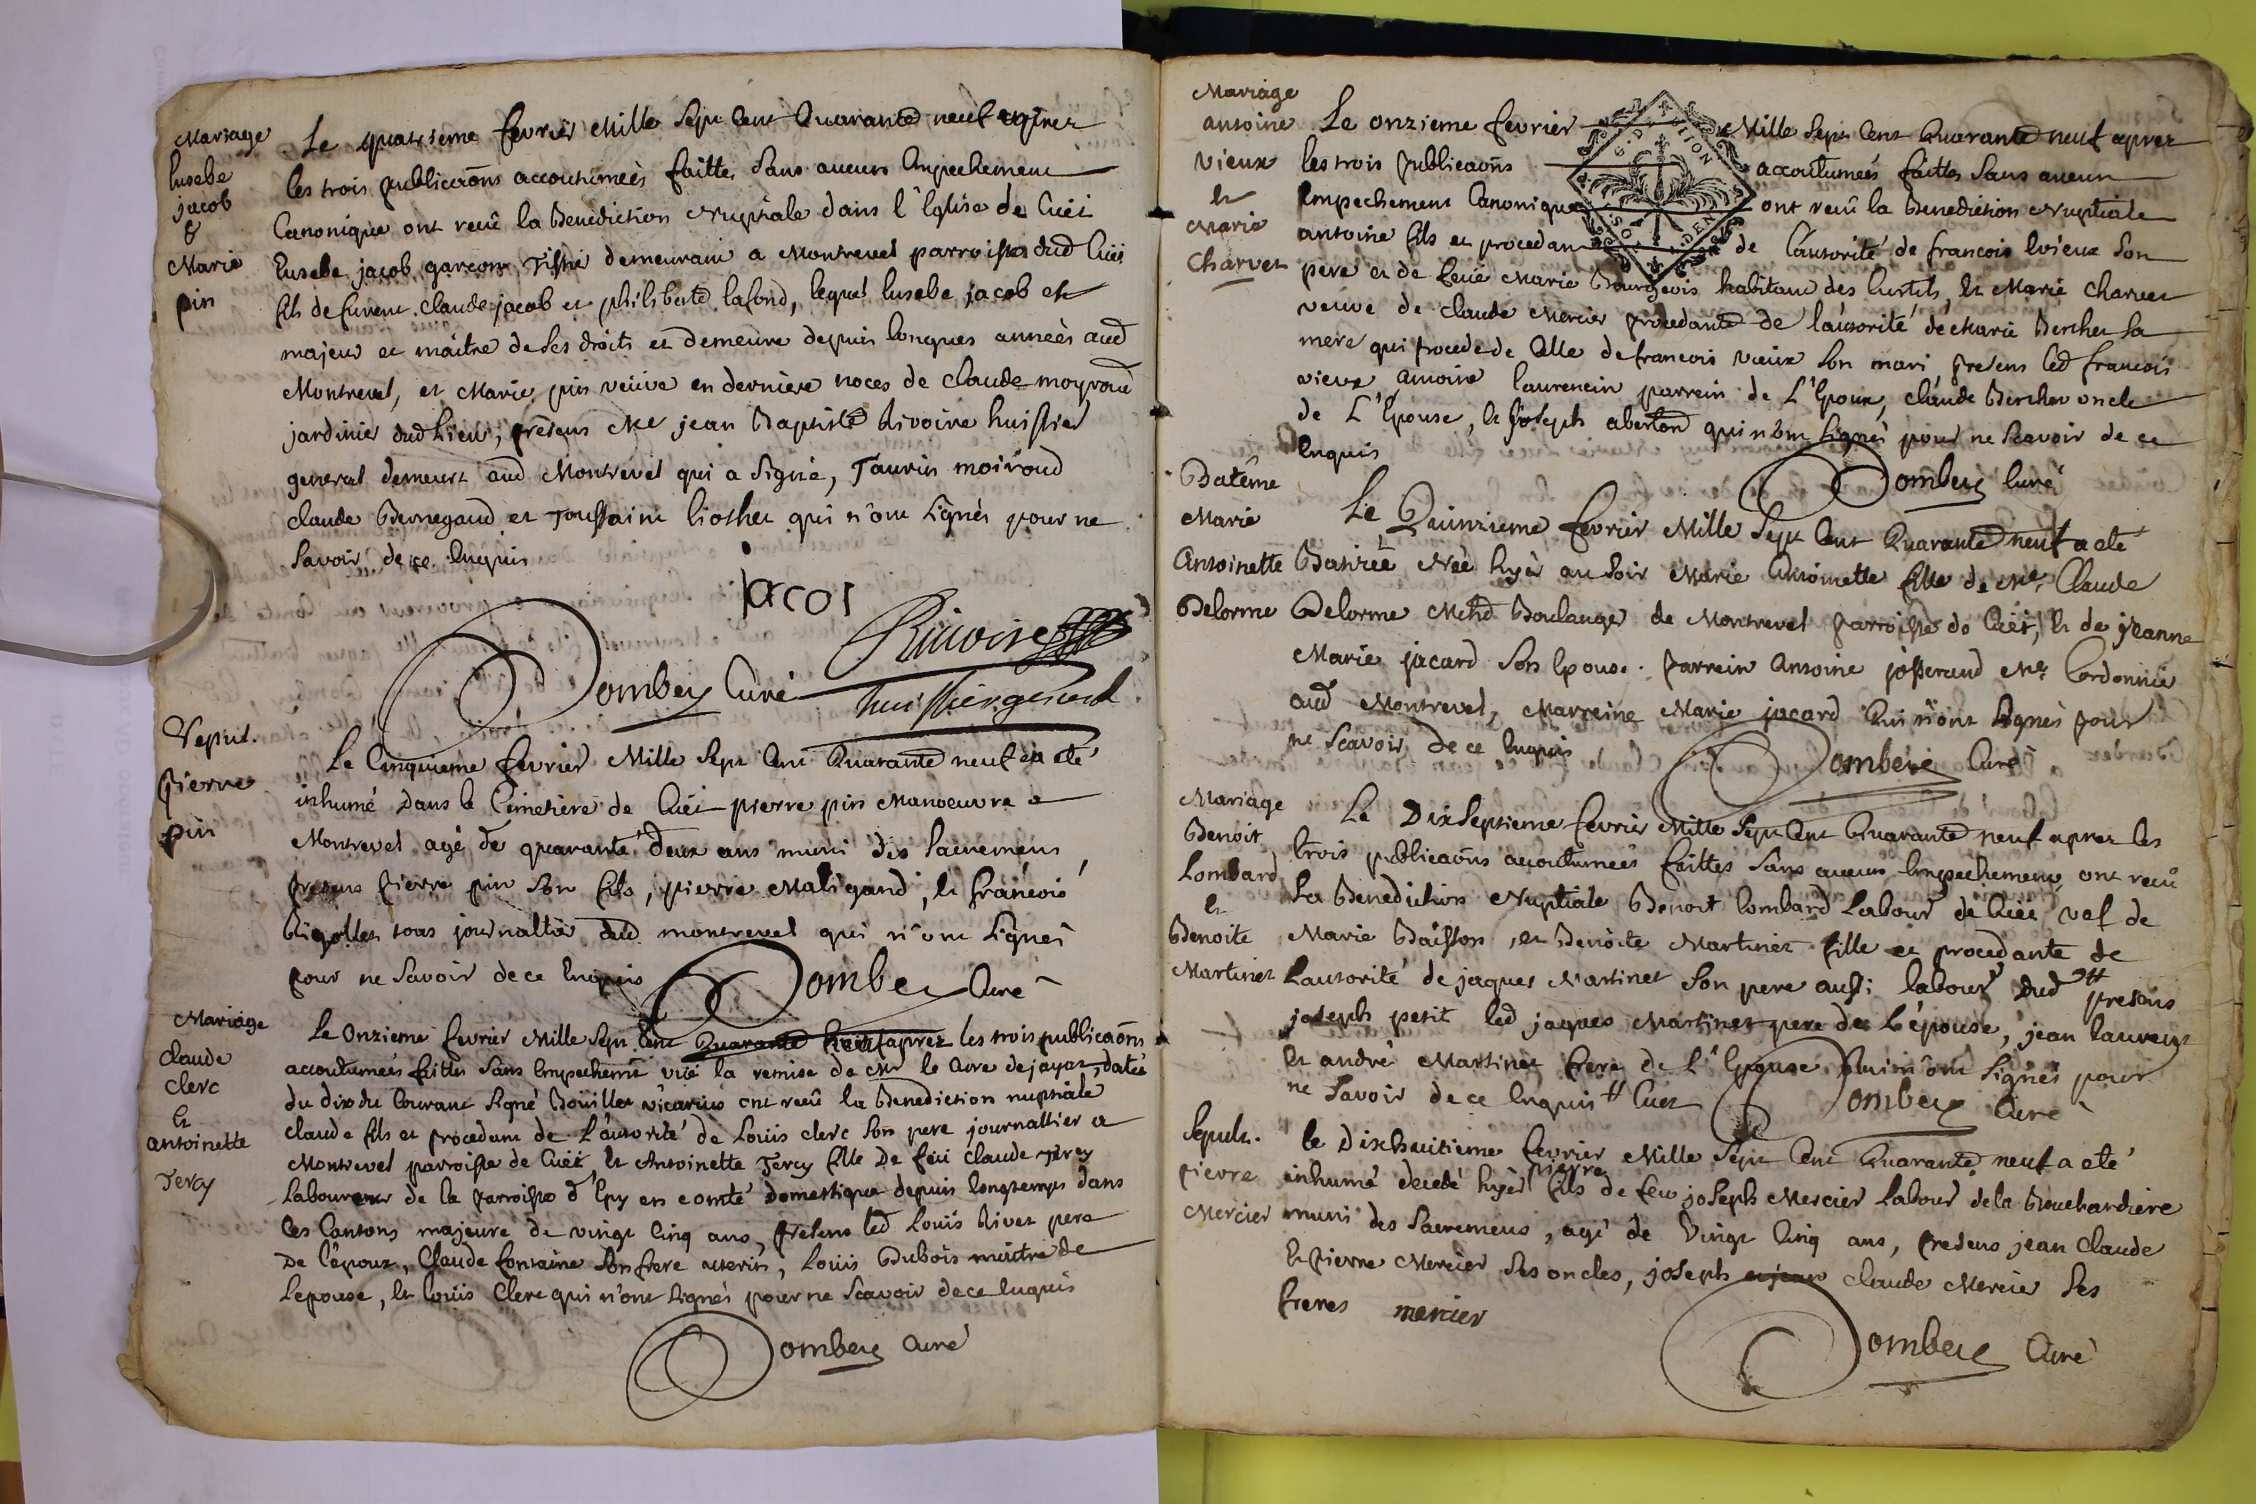 Mariage
Eusebe
jacob
&
Marie
pin
Le quatrieme fevrier Mille Sept Cent Quarante neuf aprez
les trois publicaõns accoutumeès faittes Sans aucun Empechement
Canonique ont reçû la Benediction Nuptiale dans l'Eglise de Cuèt
Eusebe jacob garçon Tissie demeurant a Montrevel parroisse dud Cuèt
fils de furent Claude jacob et philiberte lafond, lequel Eusebe jacob est
majeur et maitre de Ses droits et demeure depuis longues anneès aud
Montrevel, et Marie pin veüive en derniere noces de Claude moyroud
jardinier dud Lieu, presens Me jean Baptiste Rivoire huissier
general demeurt aud Montrevel qui a Signé, Taurin moiroud
Claude Bernegaud et Toussaint qui n'ont Signès pour ne
Savoir de ce Enquis
jacob
Rivoire
Dombey Curé
huissier general
Sepult.
pierre
pin
Le Cinquieme fevrier Mille Sept Cent Quarante neuf a eté
inhumé Dans le Cimetiere de Cuèt pierre pin Manoeuvre a
Montrevel agé de quarante deux ans muni des Sacremens
presens pierre pin Son fils, pierre Maligand, et françois
Rigollet tous journallier dud montrevel qui n'ont Signès
pour ne Savoir de ce Enquis
Dombey Curé
Mariage
Claude
Clerc
et
antoinette
Tercy
Le Onzieme fevrier Mille Sept Cent Quarante neuf aprez les trois publicaõns
accoutumeès faittes Sans Empechemt vüe la remise de Mr le Curé de jayat, datée
du dix du Courant Signé Boüillet vicarius ont reçû la Benediction nuptiale
Claude fils et procedant de L'autorité de Loüis Clerc Son pere journallier a
Montrevel parroisse de Cuèt, Et Antoinette Tercy fille De feü Claude Tercy
Laboureur de la parroisse d'Epy en comté domestique depuis longtemps dans
Ces Cantons majeure de vingt Cinq ans, presens led Louis Rivet pere
De l'époux, Claude fontaine Son frere uterin, Louis Dubois maitre de
Lepouse, Et Loüis Clerc qui n'ont Signès pour ne Scavoir de ce Enquis
Dombey Curé
Mariage
antoine
Vieux
Et
Marie
Charvet
Le onzieme fevrier Mille Sept Cent Quarante neuf aprez
les trois publicaõns accoutumeés faittes Sans aucun
Empechement Canonique ont reçû la Benediction Nuptiale
antoine fils et procedant de L'autorité de françois Vieux Son
pere et de feüe Marie Bourgeois habitant des Curtils, Et Marie Charvet
veuve de Claude Mercier procedante de l'autorité de Marie Berchet Sa
mere qui procede de Celle de françois vieux Son mari, presens led françois
vieux antoine laurencin parrein de L'Epoux, Claude Berchet oncle
de L'Epouse, et Joseph qui n'ont Signés pour ne Scavoir de ce
Enquis
Dombey Curé
Batême
Marie
Antoinette
Delorme
Le Quinzieme fevrier Mille Sept Cent Quarante neuf a eté
Batizée Née hyèr au Soir Marie Antoinette fille de Me Claude
Delorme Mchd Boulanger de Montrevel parroisse de Cuèt, Et de jeanne
Marie jacard Son Epouse. parrein Antoine josserand Me Cordonnier
aud Montrevel, Marreine Marie jacard Qui n'ont Signès pour
ne Scavoir de ce Enquis
Dombey Curé
Mariage
Benoit
Lombard
et
Benoite
Martinet
Le DixSeptieme fevrier Mille Sept Cent Quarante neuf aprez les
trois publicaõns accoutumeés faittes Sans aucun Empechement ont reçû
La Benediction Nuptiale Benoit Lombard Labour de Cuèt, vef de
Marie Baisson, et Benoite Martinet fille et procedante de
Lautorité de jaques Martinet Son pere aussi labour dud # presens
joseph petit led jaques Martinet pere de L'épouse, jean laurent
Et andré Martinet frere de L'Epouse Qui n'ont Signés pour
ne Savoir de ce Enquis # Cuet
Dombey Curé
Sepult.
pierre
Mercier
le Dixhuitieme fevrier Mille Sept Cent Quarante neuf a eté
inhumé decedé hyèr pierre fils de feu joseph Mercier Labour de la Bouchardiere
muni des Sacremens, agé de Vingt Cinq ans, presens jean Claude
Et pierre Mercier Ses oncles, joseph et jean Claude Mercier Ses
freres mercier
Dombey Curé